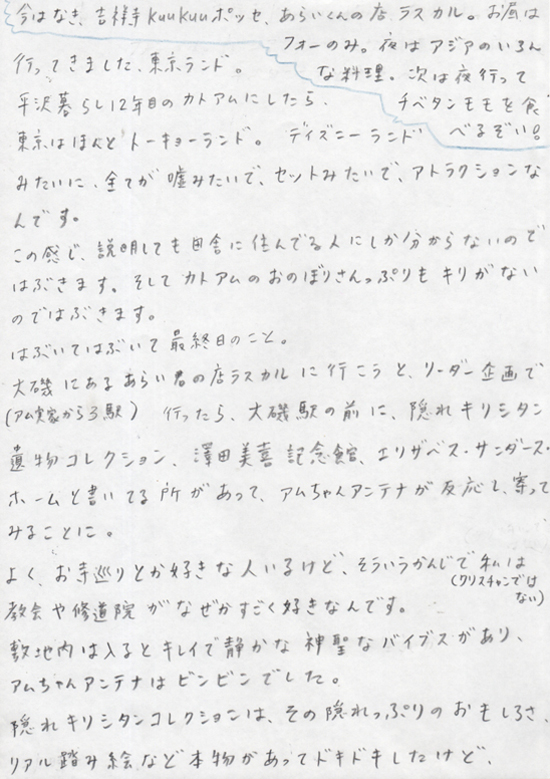 今はなき、吉祥寺KuuKuuポッセ、あらいくんの店ラスカル。お昼は
フォーのみ。夜はアジアのいろん
な料理。次は夜行って
チベタンモモを食
べるぞい!
行ってきました、東京ランド。
平沢暮らし12年目のカトアムにしたら、
東京はほんとトーキョーランド。ディズニーランド
みたいに、全てが嘘みたいで、セットみたいで、アトラクションな
んです。
この感じ、説明しても田舎に住んでる人にしか分からないので
はぶきます。そしてカトアムのおのぼりさんっぷりもキリがない
のではぶきます。
はぶいてはぶいて最終日のこと。
大磯にあるあらい君の店ラスカルに行こうと、リーダー企画で
(アム実家から3駅) 行ったら、大磯駅の前に、隠れキリシタン
遺物コレクション、澤田美喜記念館、エリザベス・サンダース・
ホームと書いてる所があって、アムちゃんアンテナが反応し、寄って
みることに。
よく、お寺巡りとか好きな人いるけど、そういうかんじで私は
(クリスチャンでは
ない)
教会や修道院がなぜかすごく好きなんです。
敷地内は入るとキレイで静かな神聖なバイブスがあり、
アムちゃんアンテナはビンビンでした。
隠れキリシタンコレクションは、その隠れっぷりのおもしろさ、
リアル踏み絵など本物があってドキドキしたけど、